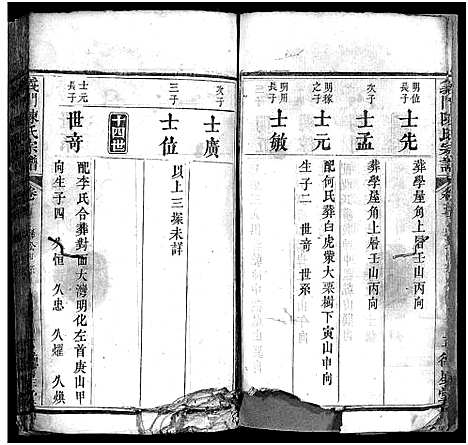 義門陳氏宗譜
明位長子
士先
葬學屋角上層壬山丙向
次子
士孟
葬學屋角上層壬山丙向
明用長子
士元
配何氏葬白虎蒙大栗樹下寅山申向
生子二 世奇 世系
士敏
次子
士廣
三子
士位
以上三塚未詳
十四世
士元長子
世奇
配李氏合葬對面大灣明化左首庚山甲
向生子四 久恒 久忠 久耀 久煥
義門陳氏宗譜